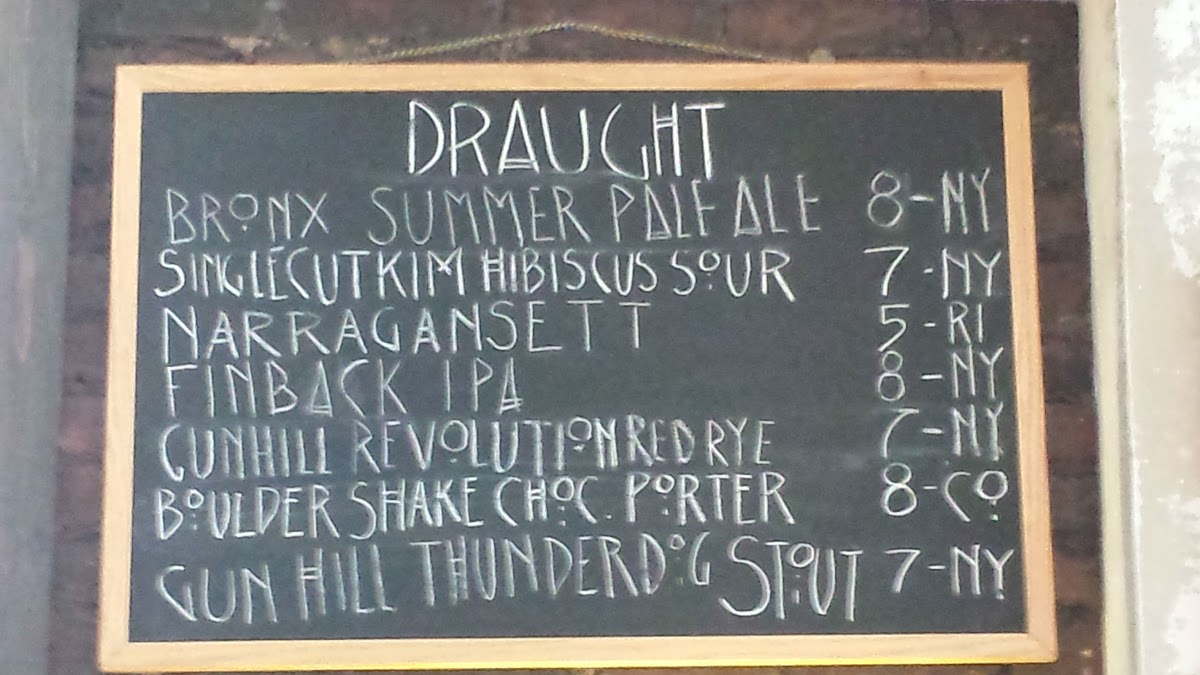 DRAUGHT
BRONX SUMMER PALE ALE 8-NY
SINGLECUT KIM HIBISCUS SOUR 7-NY
NARRAGANSETT 5-RI
FINBACK IPA 8-NY
GUNHILL REVOLUTION RED RYE 7-NY
BOULDER SHAKE CHOC. PORTER 8-CO
GUN HILL THUNDERDOG STOUT 7-NY